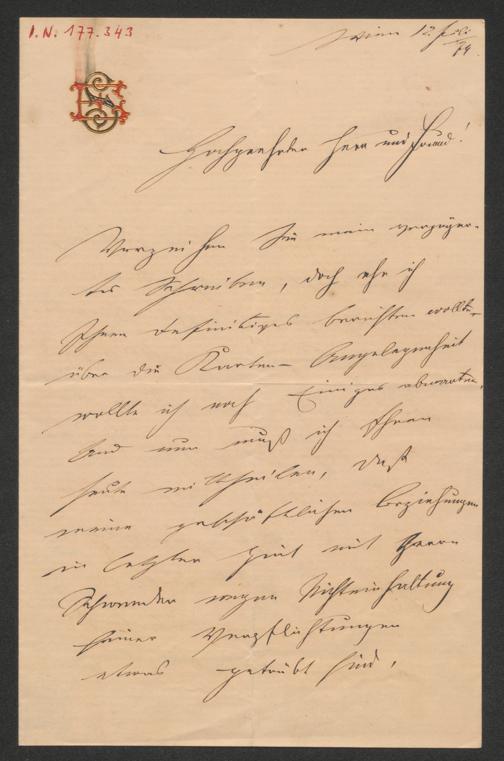 I.N. 177.343
Wien 12. Juli
84
Hochgeehrter Herr und Freund!
Verzeihen Sie mein verzöger-
tes Schreiben, doch ehe ich
Ihnen Definitives berichten wollte,
über die Karten-Angelegenheit
wollte ich noch Einiges abwarten,
und nun muß ich Ihnen
heute mittheilen, daß
meine geschäftlichen Beziehungen
in letzter Zeit mit Herrn
wegen Nichteinhaltung
seiner Verpflichtungen
etwas getrübt sind,